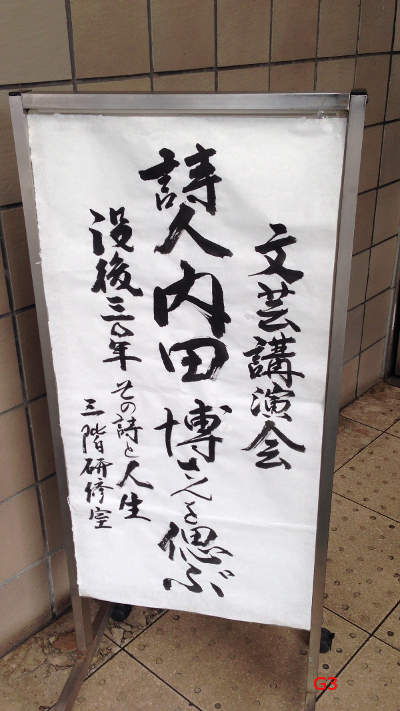 文芸講演会
詩人内田博さんを偲ぶ
没後三〇年 その詩と人生
三階研修室
G3